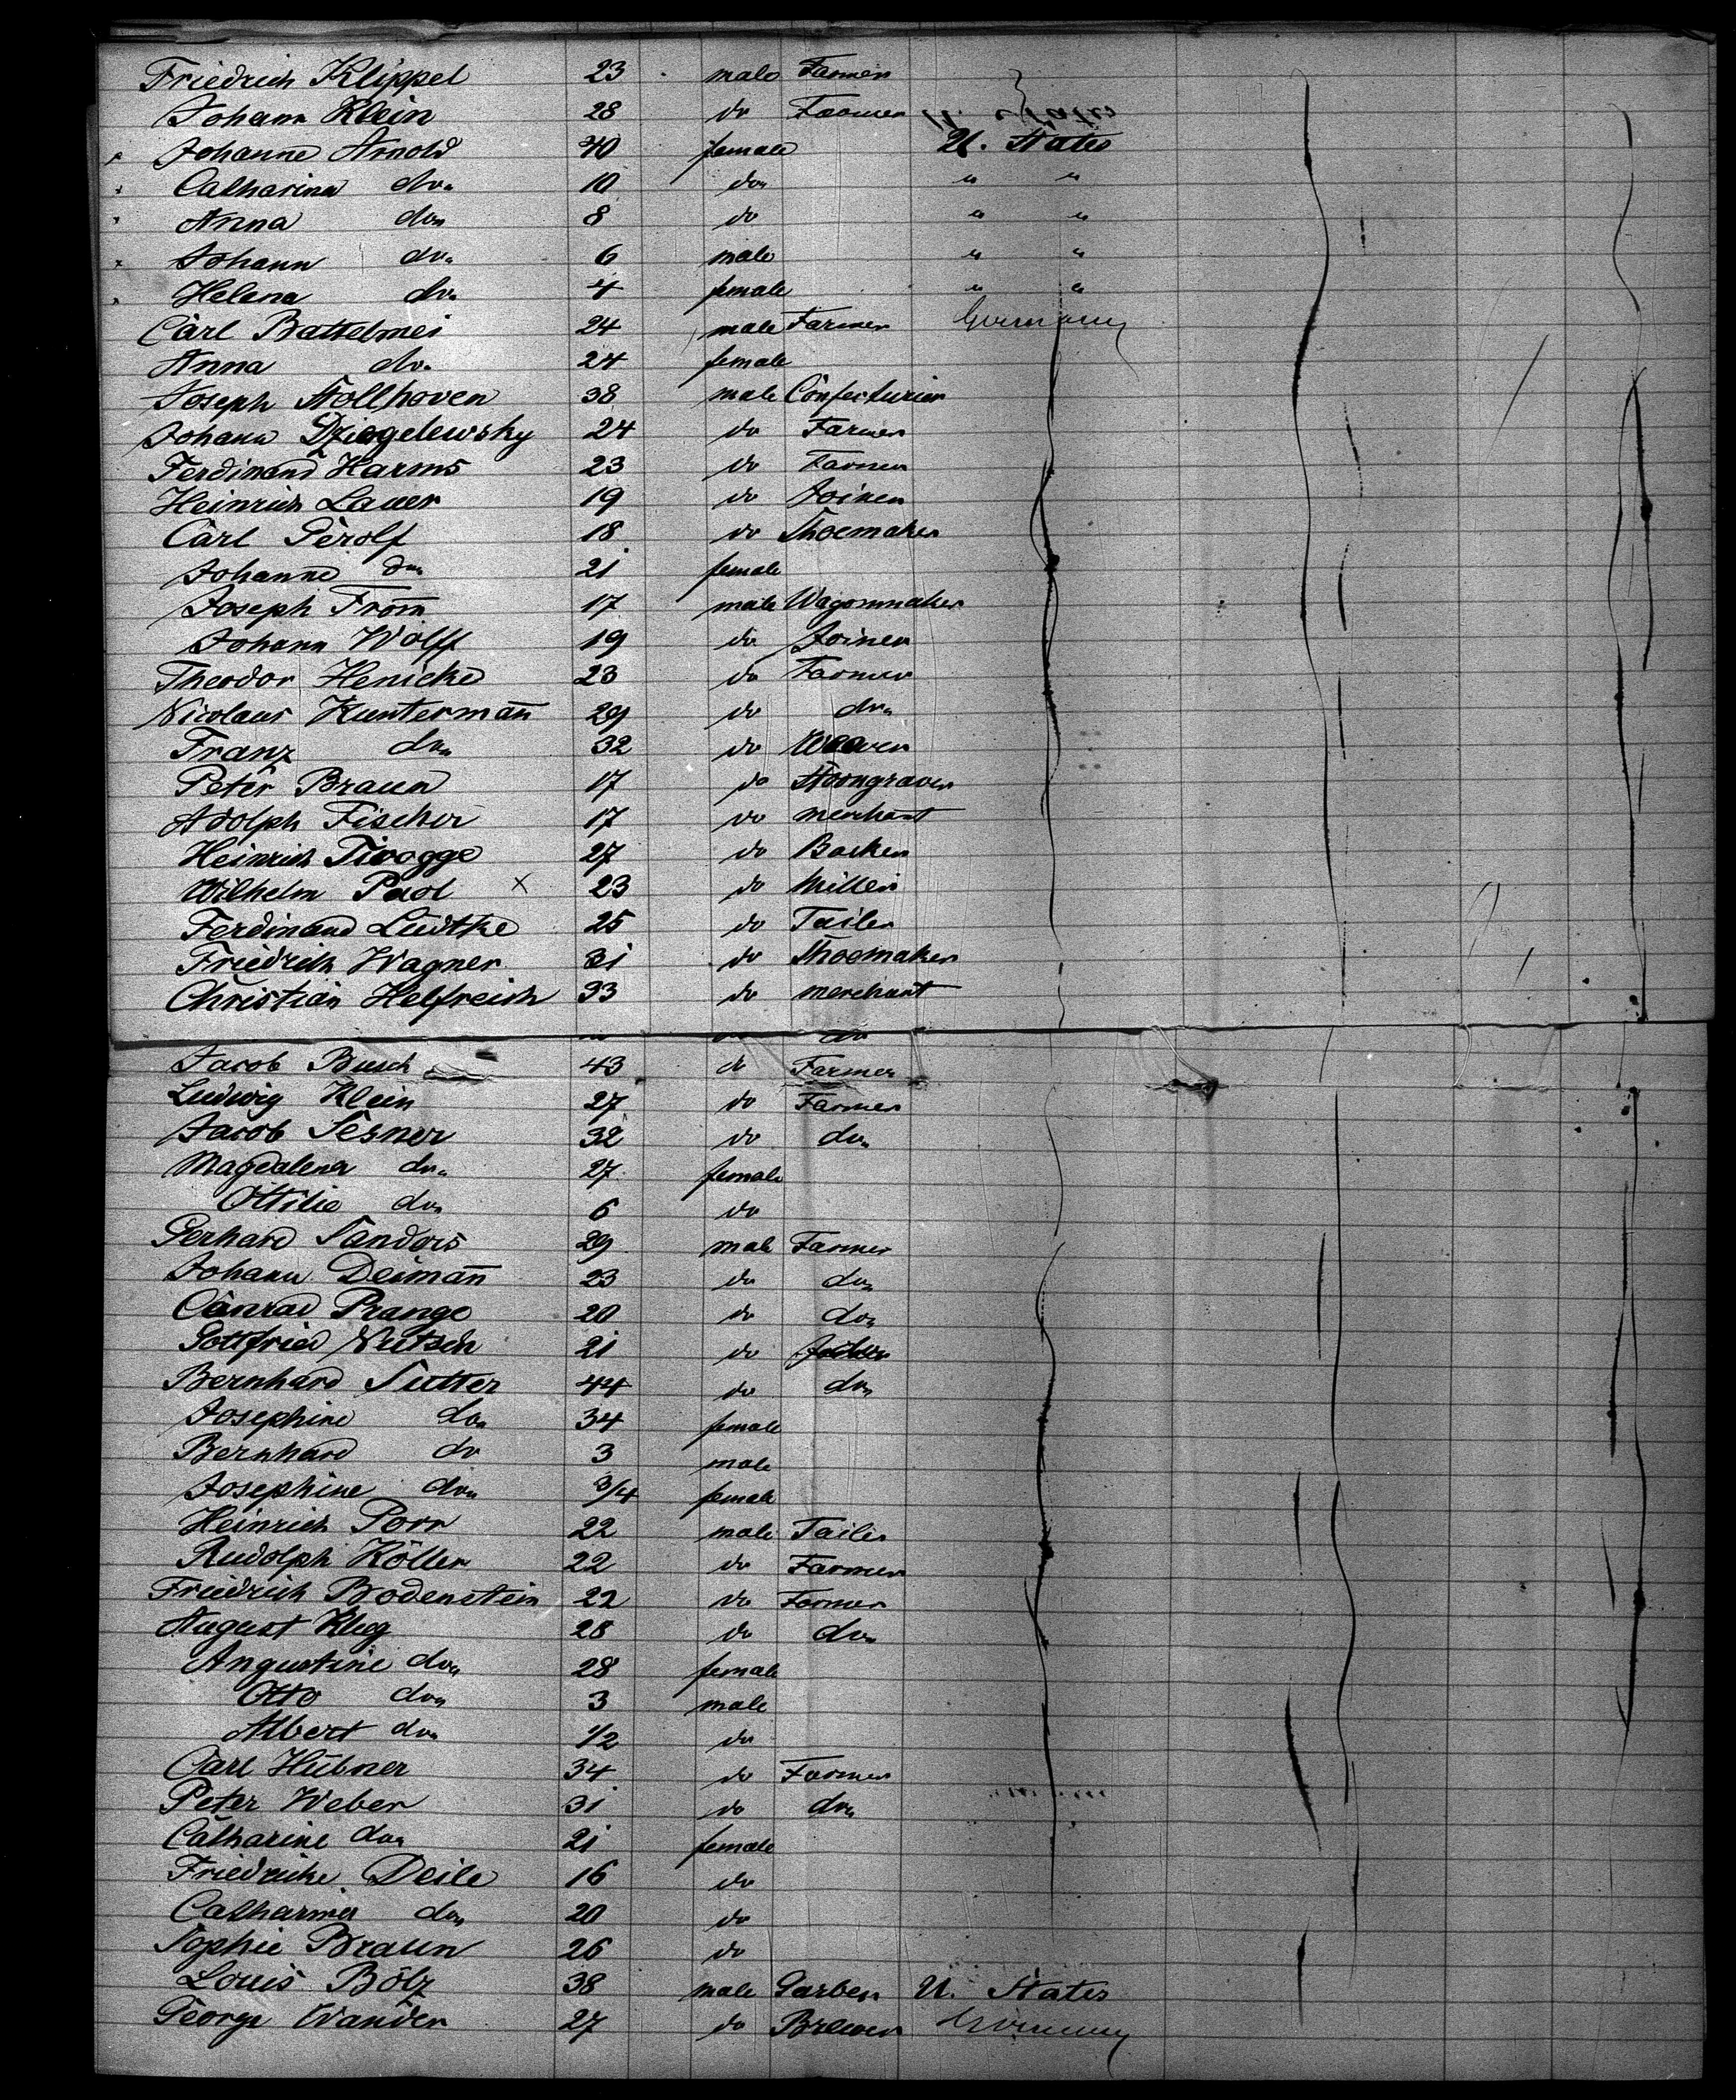 Friedrich Klippel 23 male Farmer
Johann Klein 28 do Farmer U. States
Johanne Arnold 40 female U. States
Catharina do„ 10 do„ „ „
Anna do„ 8 do „ „
Johann do„ 6 male „ „
Helena do„ 4 female „ „
Carl Battelmei 24 male Farmer Germany
Anna do„ 24 female
Joseph Stollhoven 38 male Confecturier
Johann Dziogelewsky 24 do Farmer
Ferdinand Harms 23 do Farmer
Heinrich Lauer 19 do Joiner
Carl Gerolf 18 do Shoemaker
Johanne do„ 21 female
Joseph From̄ 17 male Wagonmaker
Johann Wolff 19 do Joiner
Theodor Henicke 23 do Farmer
Nicolaus Kunterman̄ 29 do do„
Franz do„ 32 do Weaver
Peter Braun 17 do
Adolph Fischer 17 do merchant
Heinrich Tivogge 27 do Backer
Wilhelm Paol x 23 do Miller
Ferdinand Lüdtke 25 do Tailer
Friedrich Wagner 31 do Shoemaker
Christian Helfreich 33 do merchant
do
Jacob Busch 43 do Farmer
Ludwig Klein 27 do Farmer
Jacob Gesner 32 do do„
Magdalena do„ 27 female
Ottilie do„ 6 do
Gerhard Sandors 29 male Farmer
Johann Deiman̄ 23 do do„
Conrad Prange 20 do do„
Gottfried Nutsch 21 do
Bernhard Sutter 44 do do„
Josephine do„ 34 female
Bernhard do 3 male
Josephine do„ 3/4 female
Heinrich Porr 22 male Tailer
Rudolph Köller 22 do Farmer
Friedrich Bodenstein 22 do Farmer
August Klug 28 do do„
Augustine do„ 28 female
Otto do„ 3 male
Albert do„ 1/2 do
Carl Hübner 34 do Farmer
Peter Weber 31 do do„
Catharine do„ 21 female
Friedricke Deile 16 do
Catharina do„ 20 do
Sophie Braun 26 do
Louis Bölz 38 male Garber U. States
George Wander 27 do Brewer Germany